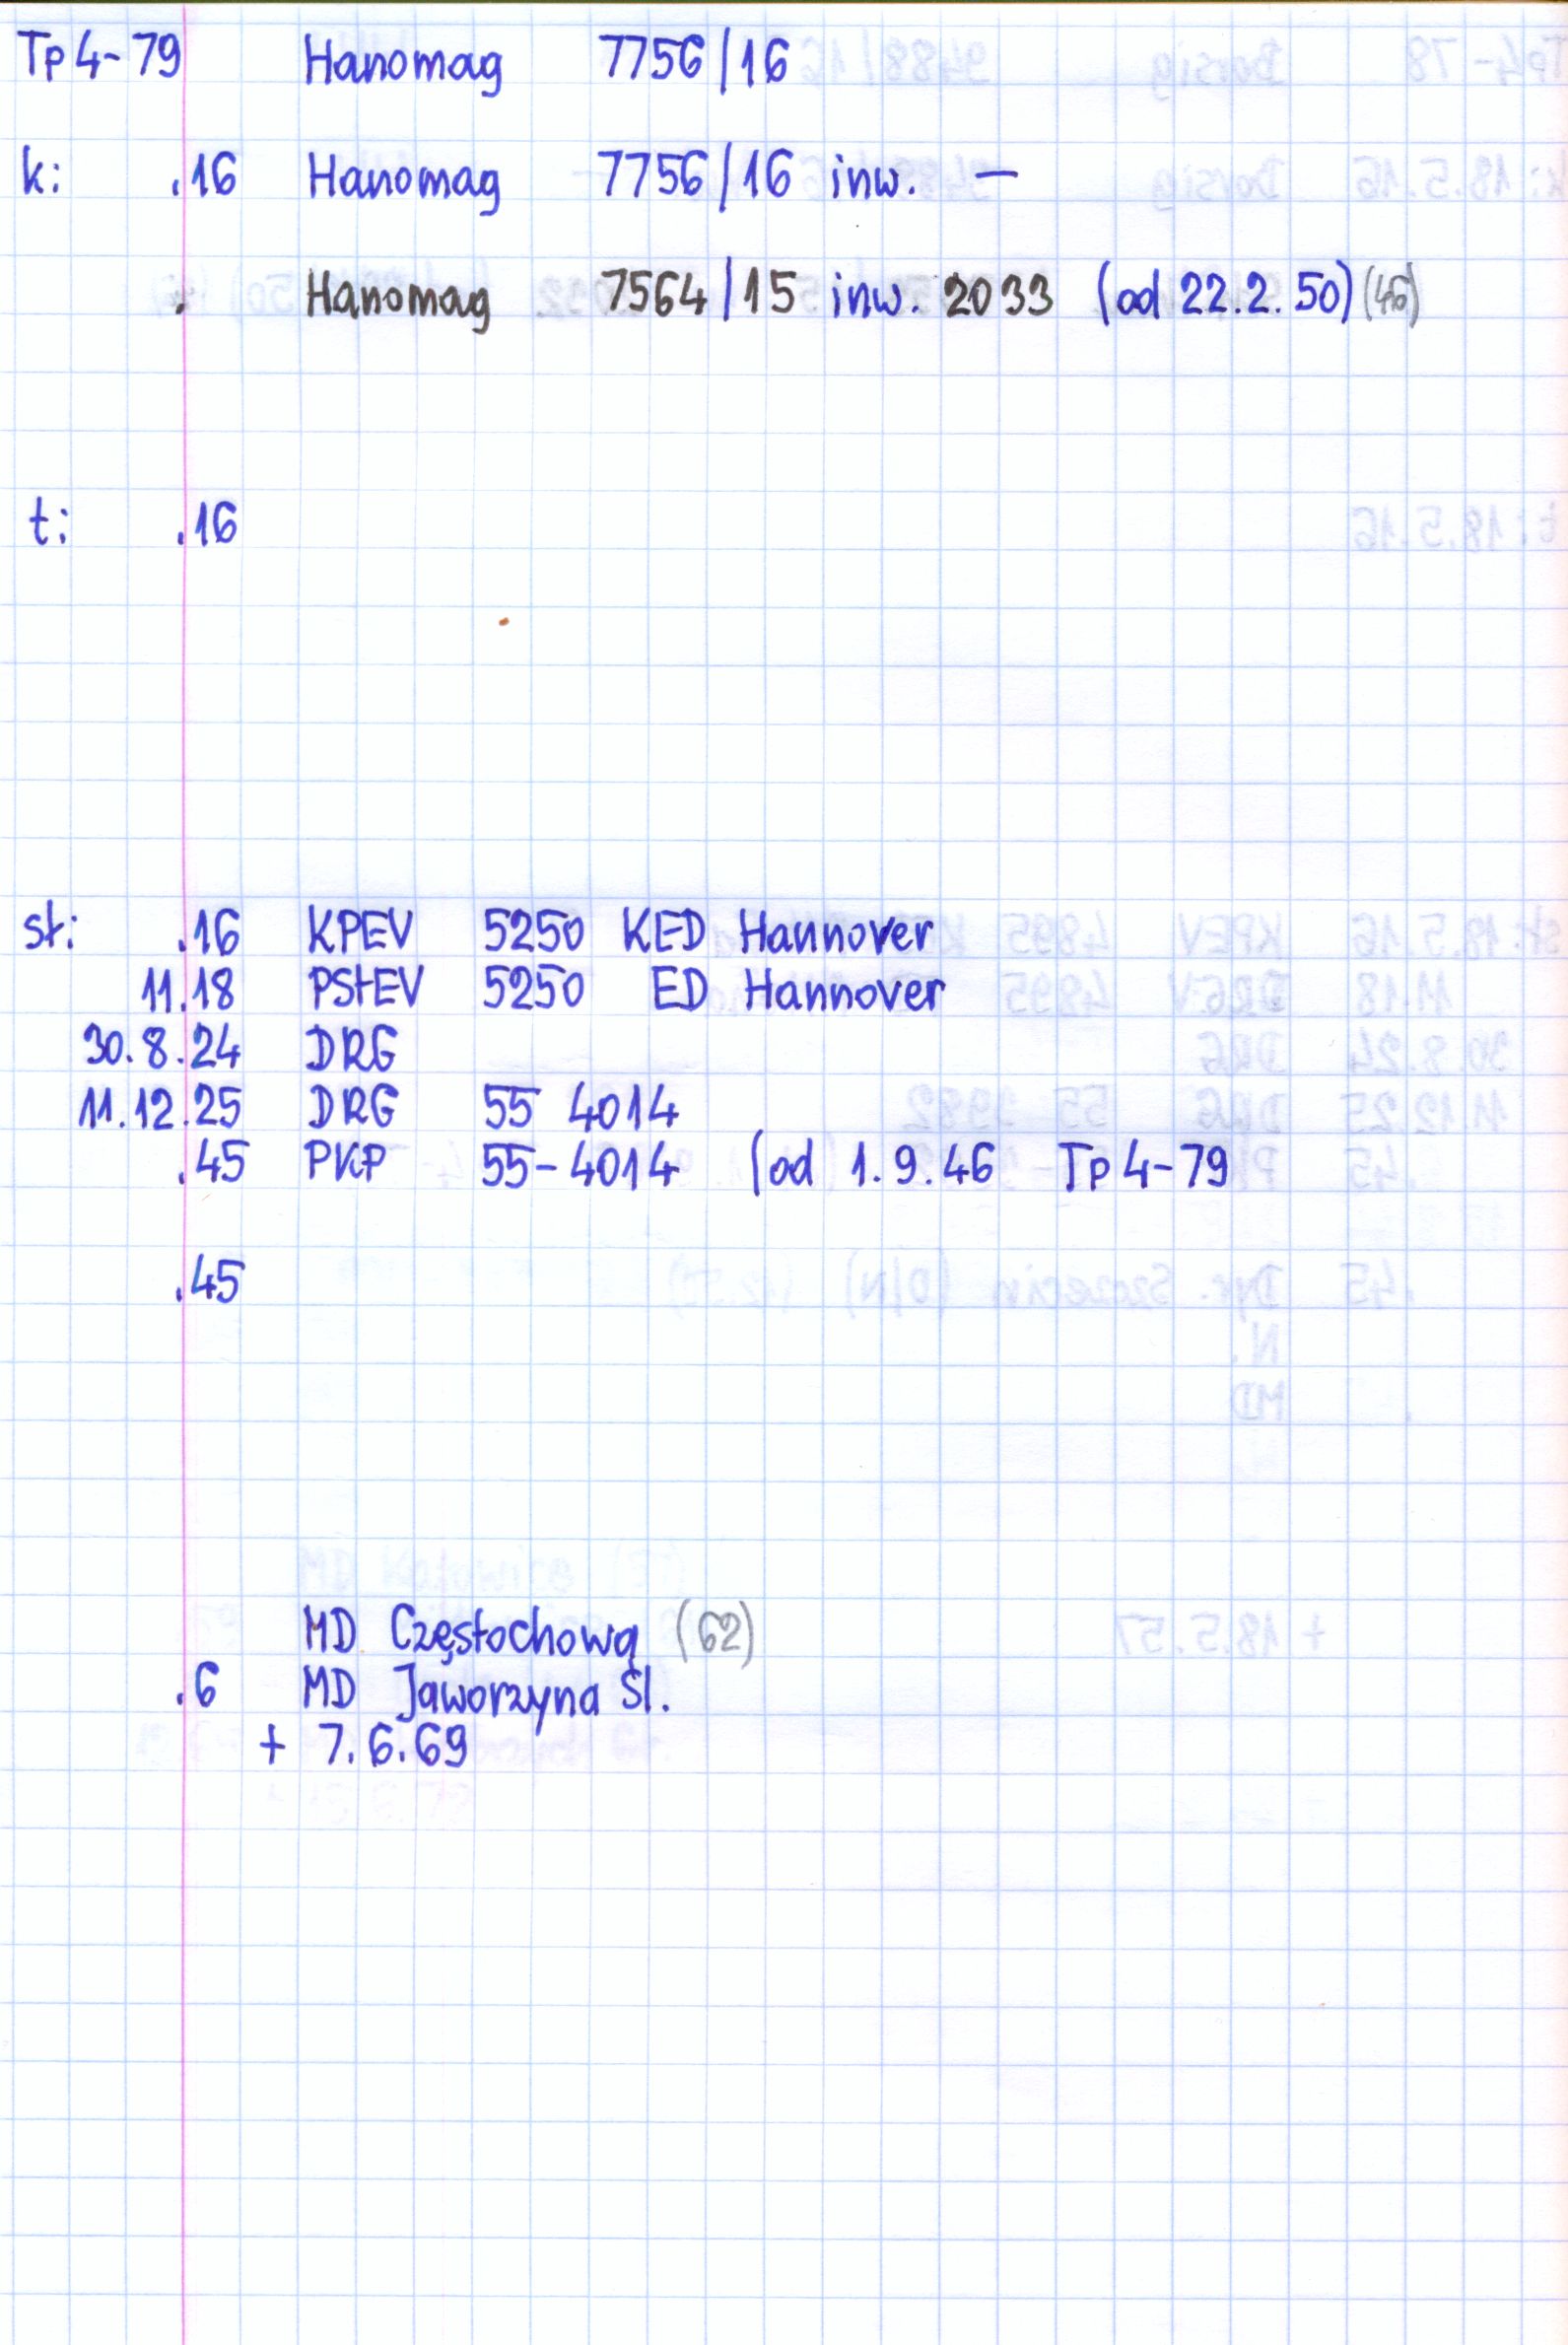 Tp4-79 Hanomag 7756/16
k: .16 Hanomag 7756/16 inw. —
. Hanomag 7564/15 inw. 2033 (od 22.2.50) (46)
t: .16
st: .16 KPEV 5250 KED Hannover
11.18 PStEV 5250 ED Hannover
30.8.24 DRG
11.12.25 DRG 55 4014
.45 PKP 55-4014 (od 1.9.46 Tp4-79
.45
MD Częstochowa (62)
.6 MD Jaworzyna Śl.
+ 7.6.69